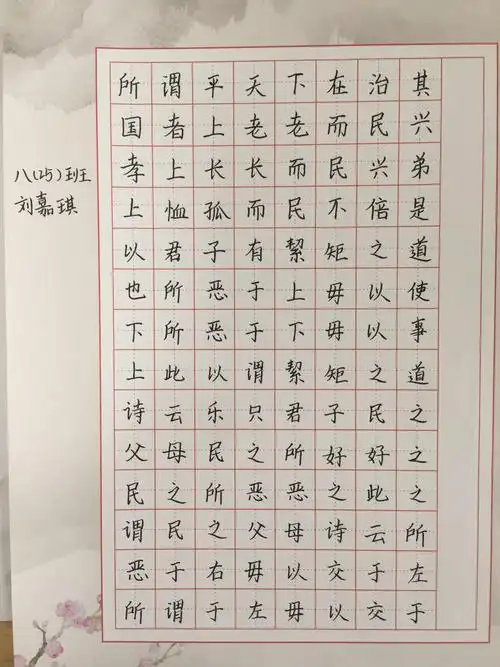 所谓平天下在治其
国者上老老而民兴
孝上长长而民兴弟
上恤孤而民不倍是
以君子有絜矩之道
也所恶于上毋以使
下所恶于下毋以事
上此以谓絜矩之道
诗云乐只君子民之
父母民之所好好之
民之所恶恶之此之
谓民之父母诗云所
恶于右毋以交于左
所谓于左毋以交于
八(25)班
刘嘉琪